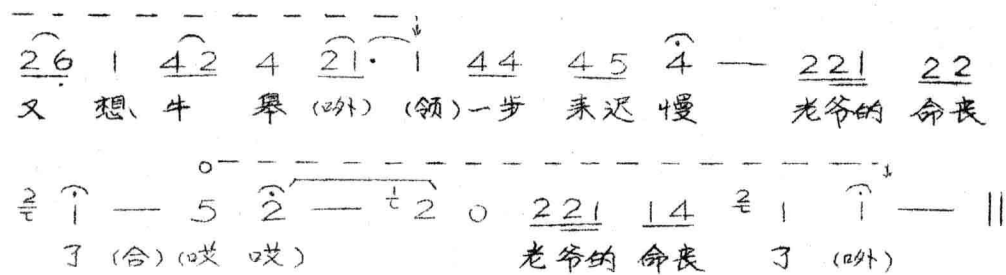 26 1 42 4 21· 1 44 45 4 — 221 22
又 想、牛 举 (外) (领) 一步 来迟 慢 老爷的 命丧
1 — 5 2 — 2 0 221 14 1 1 — ‖
了 (合) (哎 哎) 老爷的 命丧 了 (外)